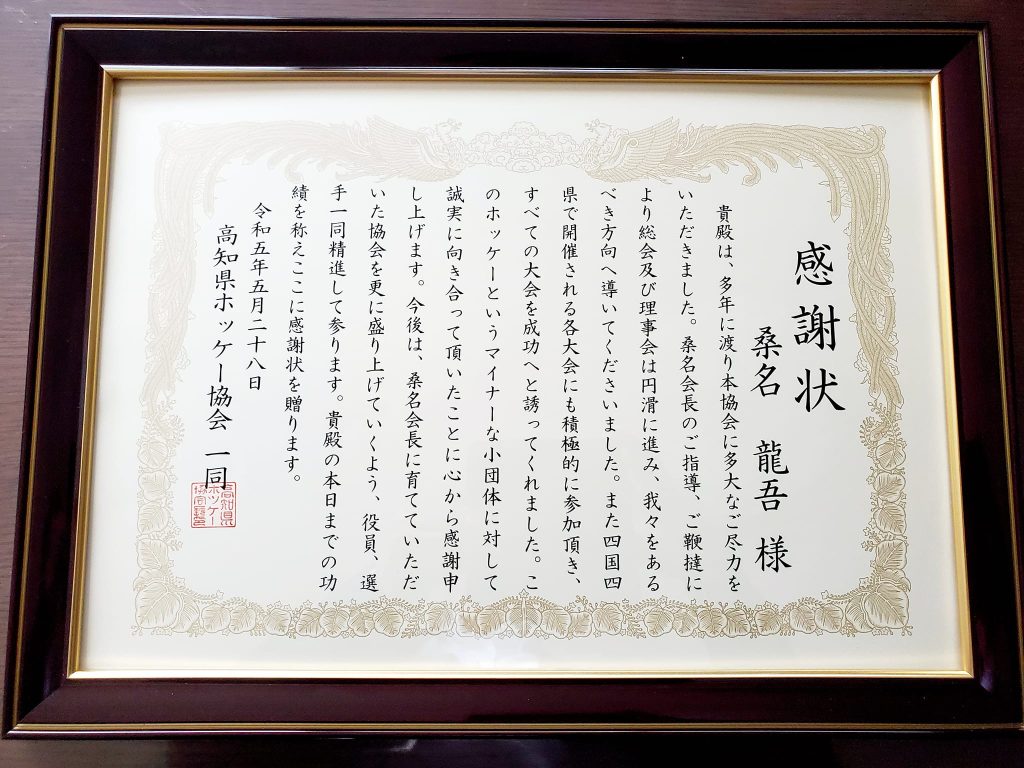 感謝状
桑名 龍吾 様
貴殿は、多年に渡り本協会に多大なご尽力を
いただきました。桑名会長のご指導、ご鞭撻に
より総会及び理事会は円滑に進み、我々をある
べき方向へ導いてくださいました。また四国四
県で開催される各大会にも積極的に参加頂き、
すべての大会を成功へと誘ってくれました。こ
のホッケーというマイナーな小団体に対して
誠実に向き合って頂いたことに心から感謝申
し上げます。今後は、桑名会長に育てていただ
いた協会を更に盛り上げていくよう、役員、選
手一同精進して参ります。貴殿の本日までの功
績を称えここに感謝状を贈ります。
令和五年五月二十八日
高知県ホッケー協会 一同
高知県
ホッケー